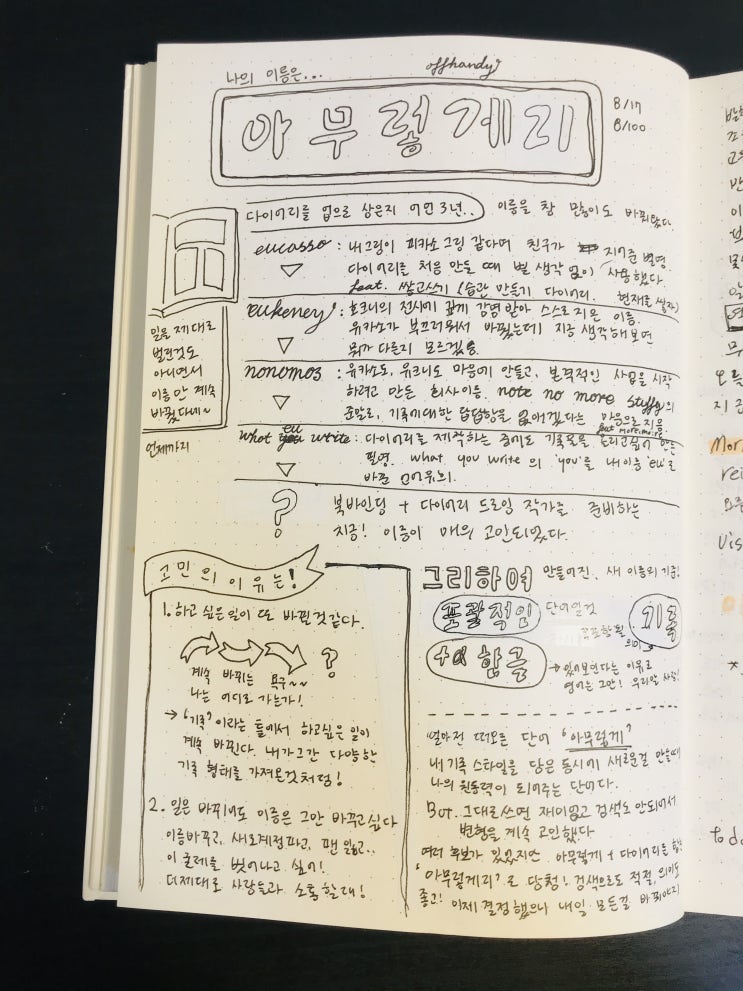 나의 이름은...
offhandy
아무렇게리
8/17
8/100
다이어리를 업으로 삼은지 어언 3년.. 이름을 참 많이도 바꿔왔다.
eucasso : 내그림이 피카소 그림 같다며 친구가 지어준 별명
다이어리를 처음 만들 때 별 생각 없이 사용했다.
feat. 쌓고쓰기 (습관 만들기 다이어리. 현재로 쌓자)
eukeney : 호크니의 전시에 깊게 감명받아 스스로 지은 이름.
유카소가 부끄러워서 바꿨는데 지금 생각해보면
뭐가 다른지 모르겠음.
nonomos : 유카소도, 유크니도 마음에 안들고, 본격적인 사업을 시작
하려고 만든 회사이름. note no more stuffy의
준말로, 기록에대한 답답함을 없애겠다는 마음으로 지음
feat. more.more
what eu write : 다이어리를 제작하는 중에도 기록물을 올리고싶어 만든
필명. what you write 의 'you'를 내이름 'eu'로
바꾼 언어유희.
? 북바인딩 + 다이어리 드로잉 작가를 준비하는
지금! 이름이 매우 고민되었다.
일을 제대로
벌린것도
아니면서
이름만 계속
바꿨다네~
언제까지
고민의 이유는!
1. 하고 싶은일이 또 바뀐것같다.
?
계속 바뀌는 욕구~~
나는 어디로 가는가!
→ '기록'이라는 틀에서 하고싶은 일이
계속 바뀐다. 내가그간 다양한
기록 형태를 가져온것처럼!
2. 일은 바뀌어도 이름은 그만 바꾸고싶다
이름바꾸고, 새로계정파고, 팬 잃고..
이 굴레를 벗어나고 싶어!
더 제대로 사람들과 소통할래!
그리하여 만들어진, 새 이름의 기준!
포괄적인 단어일것
기록
포함할
의미
+α 한글
→ 있어보인다는 이유로
영어는 그만! 우리말 사랑!
얼마전 떠오른 단어 '아무렇게'
내 기록 스타일을 담은 동시에 새로운걸 만들때
나의 원동력이 되어주는 단어다.
But. 그대로쓰면 재미없고 검색도 안되어서
변형을 계속 고민했다
여러 후보가 있었지만 아무렇게 + 다이어리를 합친
'아무렇게리'로 당첨! 검색으로도 적절, 의미도
좋고! 이제 결정했으니 내일 모든걸 바꿔야지